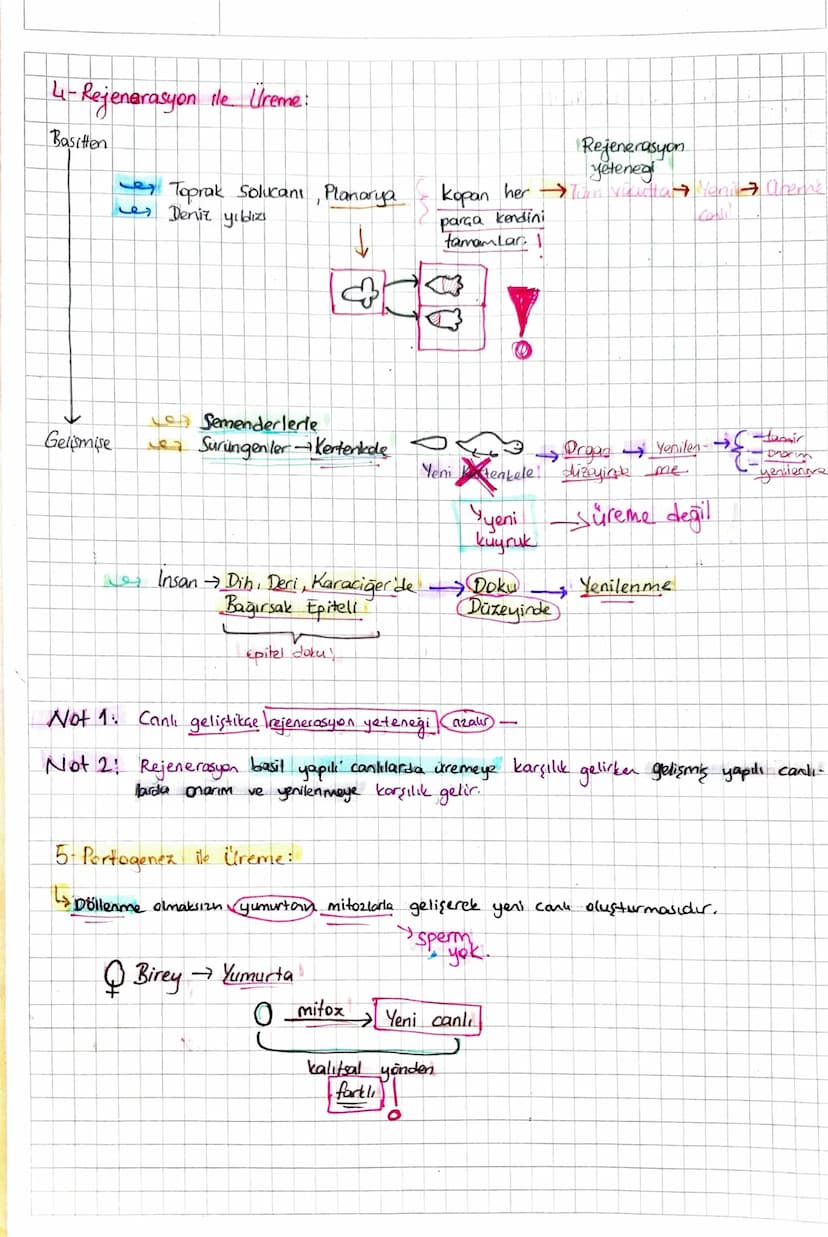 4-Rejenerasyon ile Üreme:
Basitten
Rejenerasyon
yeteneği
Toprak Solucanı, Planarya
kopan her → Tüm vücutta → Yeni → üreme
Deniz yıldızı
parça kendini
canlı
tamamlar. !
Semenderlerle
Gelişmişe
Sürüngenler → Kertenkele
→ Organ → Yenilen-
- tamir
- onarım
Yeni Kertenkele!
düzeyinde
me
- yenilenme
yeni
kuyruk
→ üreme değil
İnsan → Dih, Deri, Karaciğer'de → Doku → Yenilenme
Bağırsak Epiteli
Düzeyinde
Epitel doku!
Not 1: Canlı geliştikçe rejenerasyon yeteneği azalır -
Not 2: Rejenerasyon basil yapılı canlılarda üremeye karşılık gelirken gelişmiş yapılı canlı-
larda onarım ve yenilenmeye karşılık gelir.
5-Partogenez ile Üreme:
Döllenme olmaksızın yumurtanın mitozlarla gelişerek yeni canlı oluşturmasıdır.
sperm
yok.
♀ Birey → Yumurta
mitoz → Yeni canlı
kalıtsal yönden
farklı !